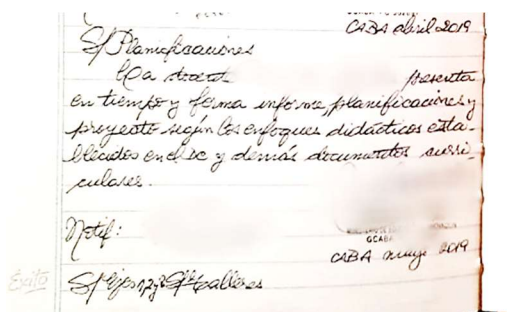 CABA abril 2019
S/ Planificaciones
La docente presenta
en tiempo y forma informe, planificaciones y
proyecto según los enfoques didácticos esta-
blecidos en el DC y demás documentos curri-
culares.
Notif:
GCABA
CABA mayo 2019
Éxito
S/ Ejes 1, 2 y talleres